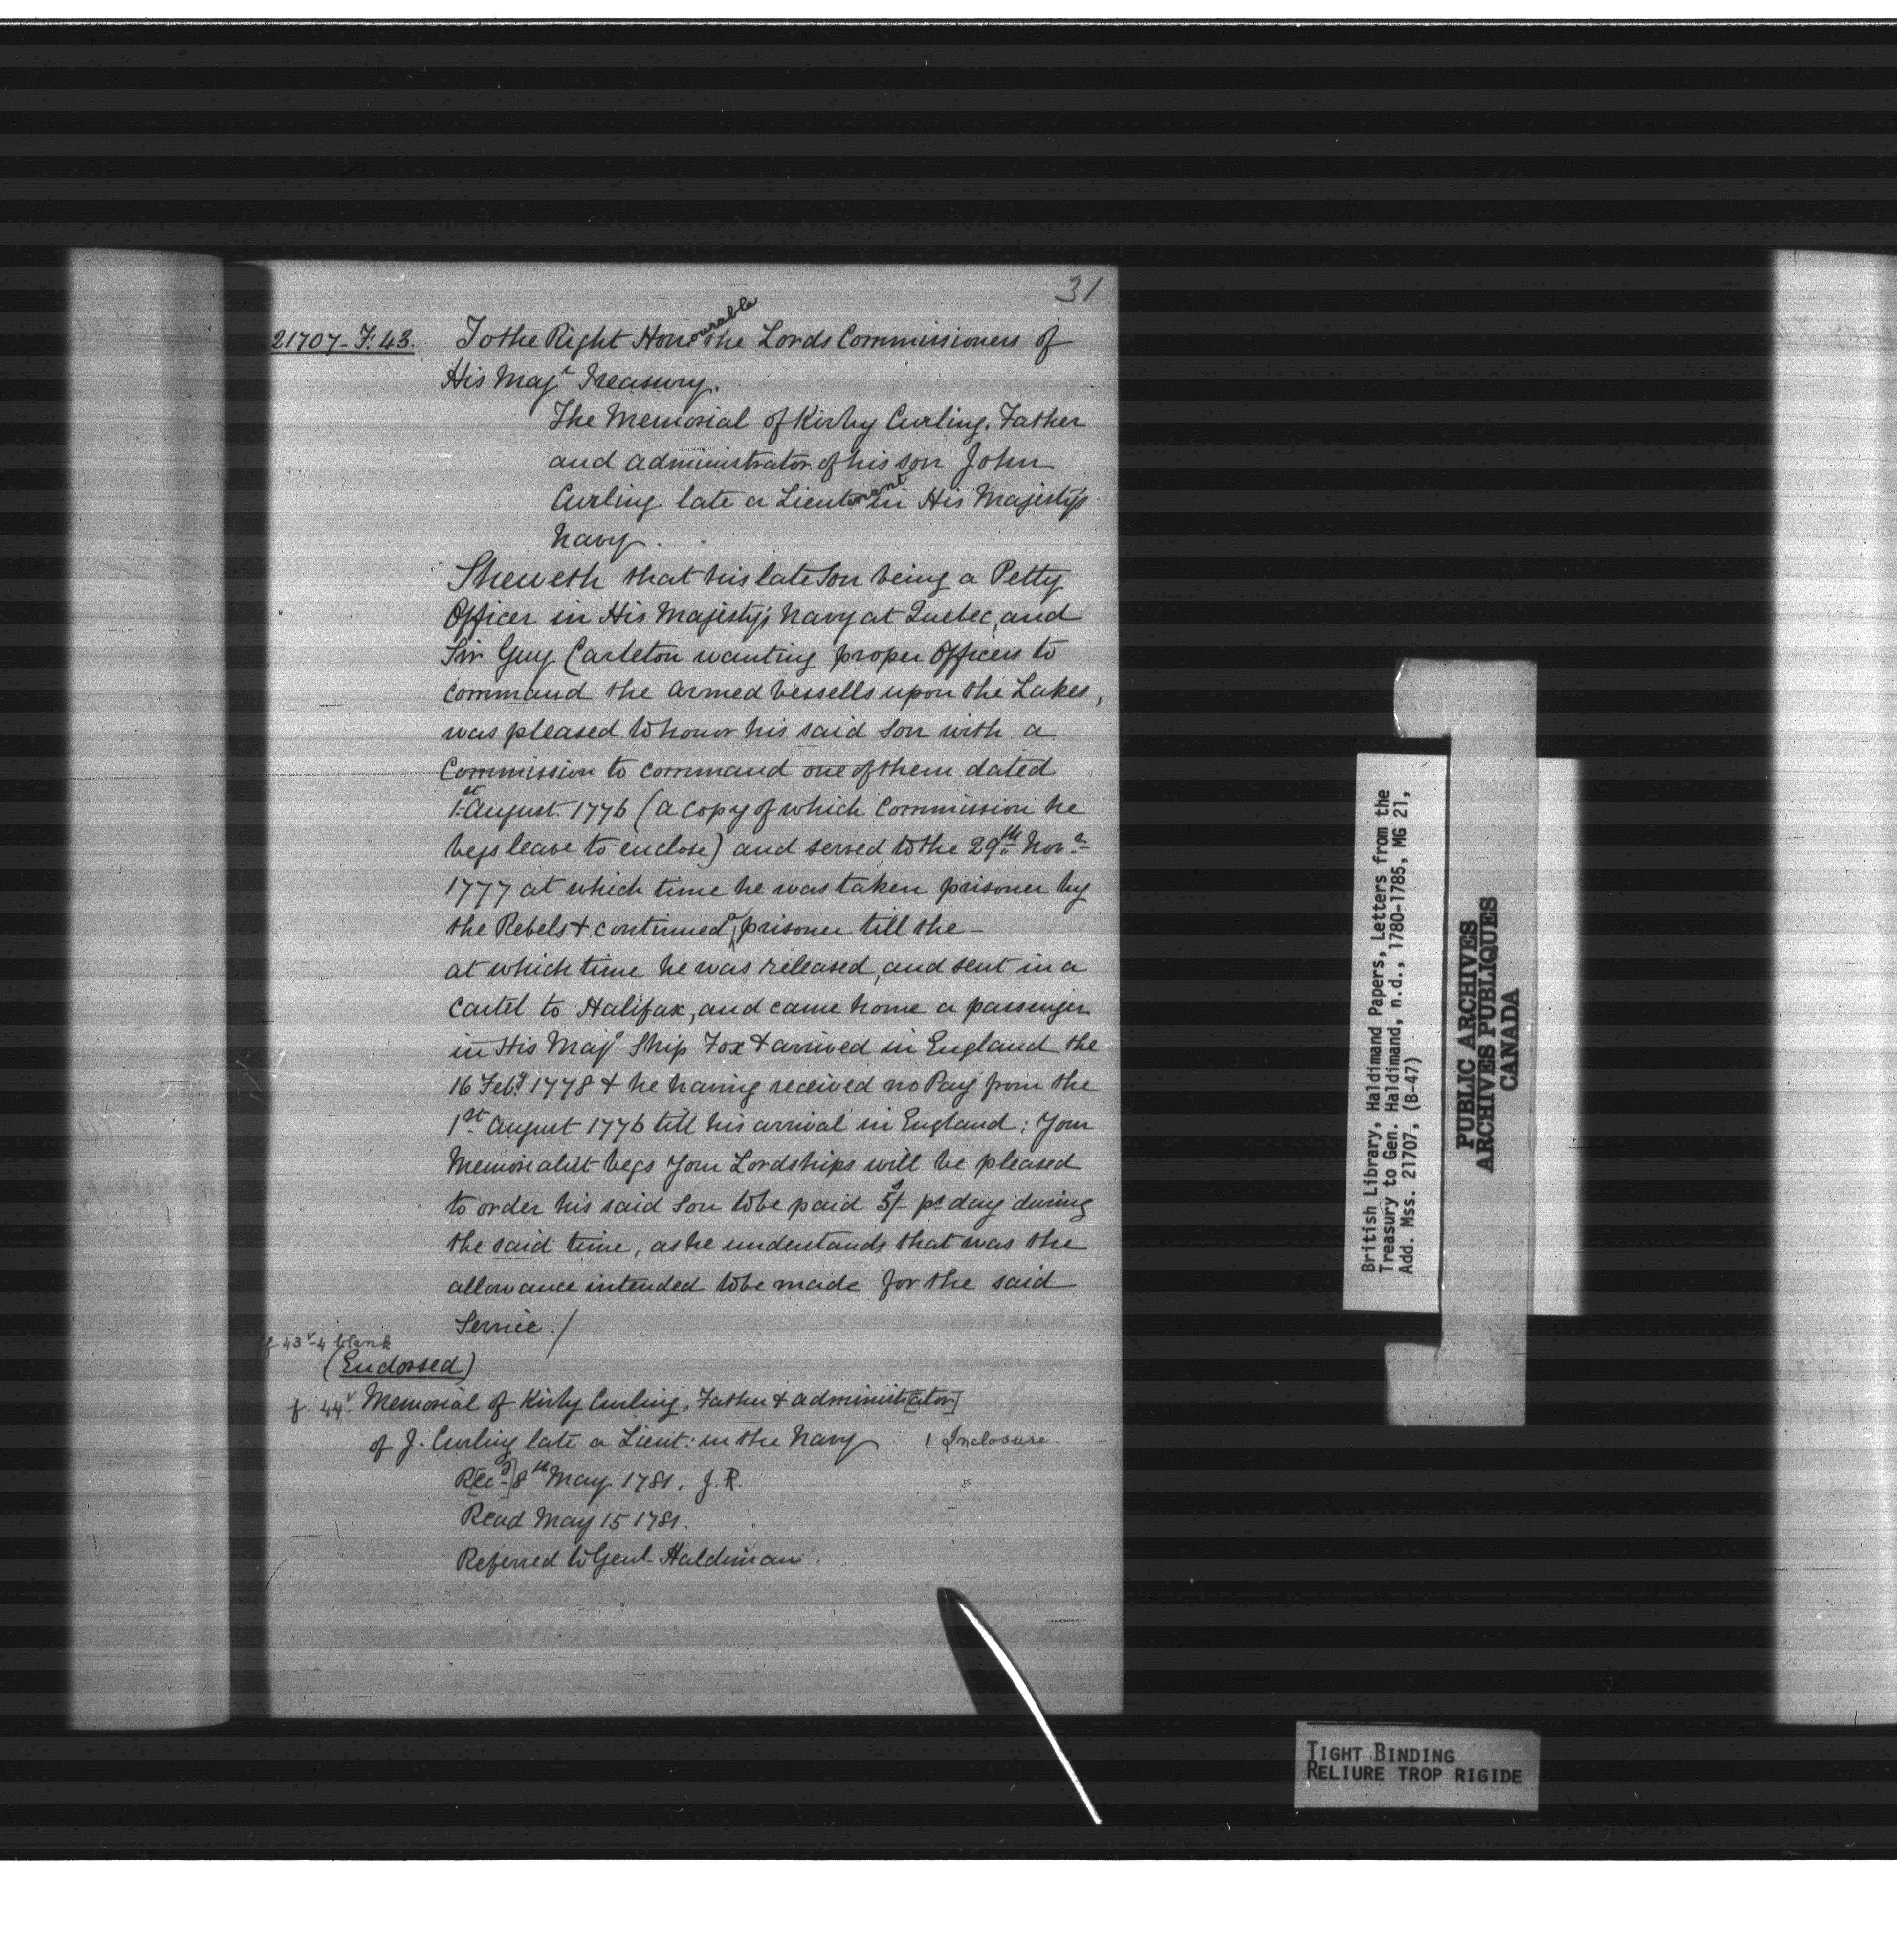 31
21707-F. 43.
To the Right Honourable the Lords Commissioners of
His Majs Treasury.
The Memorial of Kirby Curling, Father
and administrator of his son John
Curling late a Lieutenant in His Majestys
Navy.
Sheweth that his late Son being a Petty
Officer in His Majesty's Navy at Quebec, and
Sir Guy Carleton wanting proper Officers to
command the armed Vessells upon the Lakes,
was pleased to honor his said Son with a
Commission to command one of them dated
1st August 1776 (a copy of which Commission he
begs leave to enclose) and served to the 29th Novr
1777 at which time he was taken prisoner by
the Rebels & continued a prisoner till the —
at which time he was released, and sent in a
Cartel to Halifax, and came home a passenger
in His Majs Ship Fox & arrived in England the
16 Feby 1778 & he having received no Pay from the
1st August 1776 till his arrival in England: Your
Memorialist begs Your Lordships will be pleased
to order his said Son to be paid 5s/- pr day during
the said time, as he understands that was the
allowance intended to be made for the said
Service./
ff 43v-4 blank
(Endorsed)
f. 44v. Memorial of Kirby Curling, Father & administr[ator]
of J. Curling late a Lieut. in the Navy 1 Inclosure.
R[ecd] 8th May 1781. J. R.
Read May 15 1781.
Referred to Genl Haldiman.
British Library, Haldimand Papers, Letters from the
Treasury to Gen. Haldimand, n.d., 1780-1785, MG 21,
Add. Mss. 21707, (B-47)
PUBLIC ARCHIVES
ARCHIVES PUBLIQUES
CANADA
TIGHT BINDING
RELIURE TROP RIGIDE